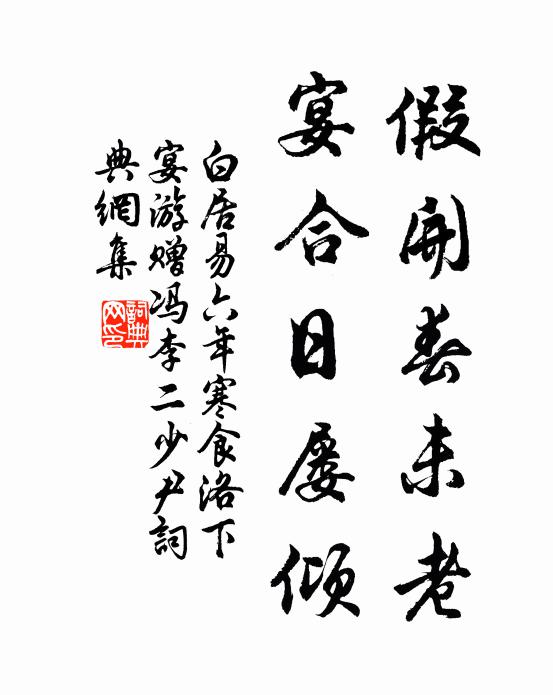 假開春未老
宴合日屡倾
白居易六年寒食洛下
宴游赠冯李二少尹詞
典網集
詞典网印